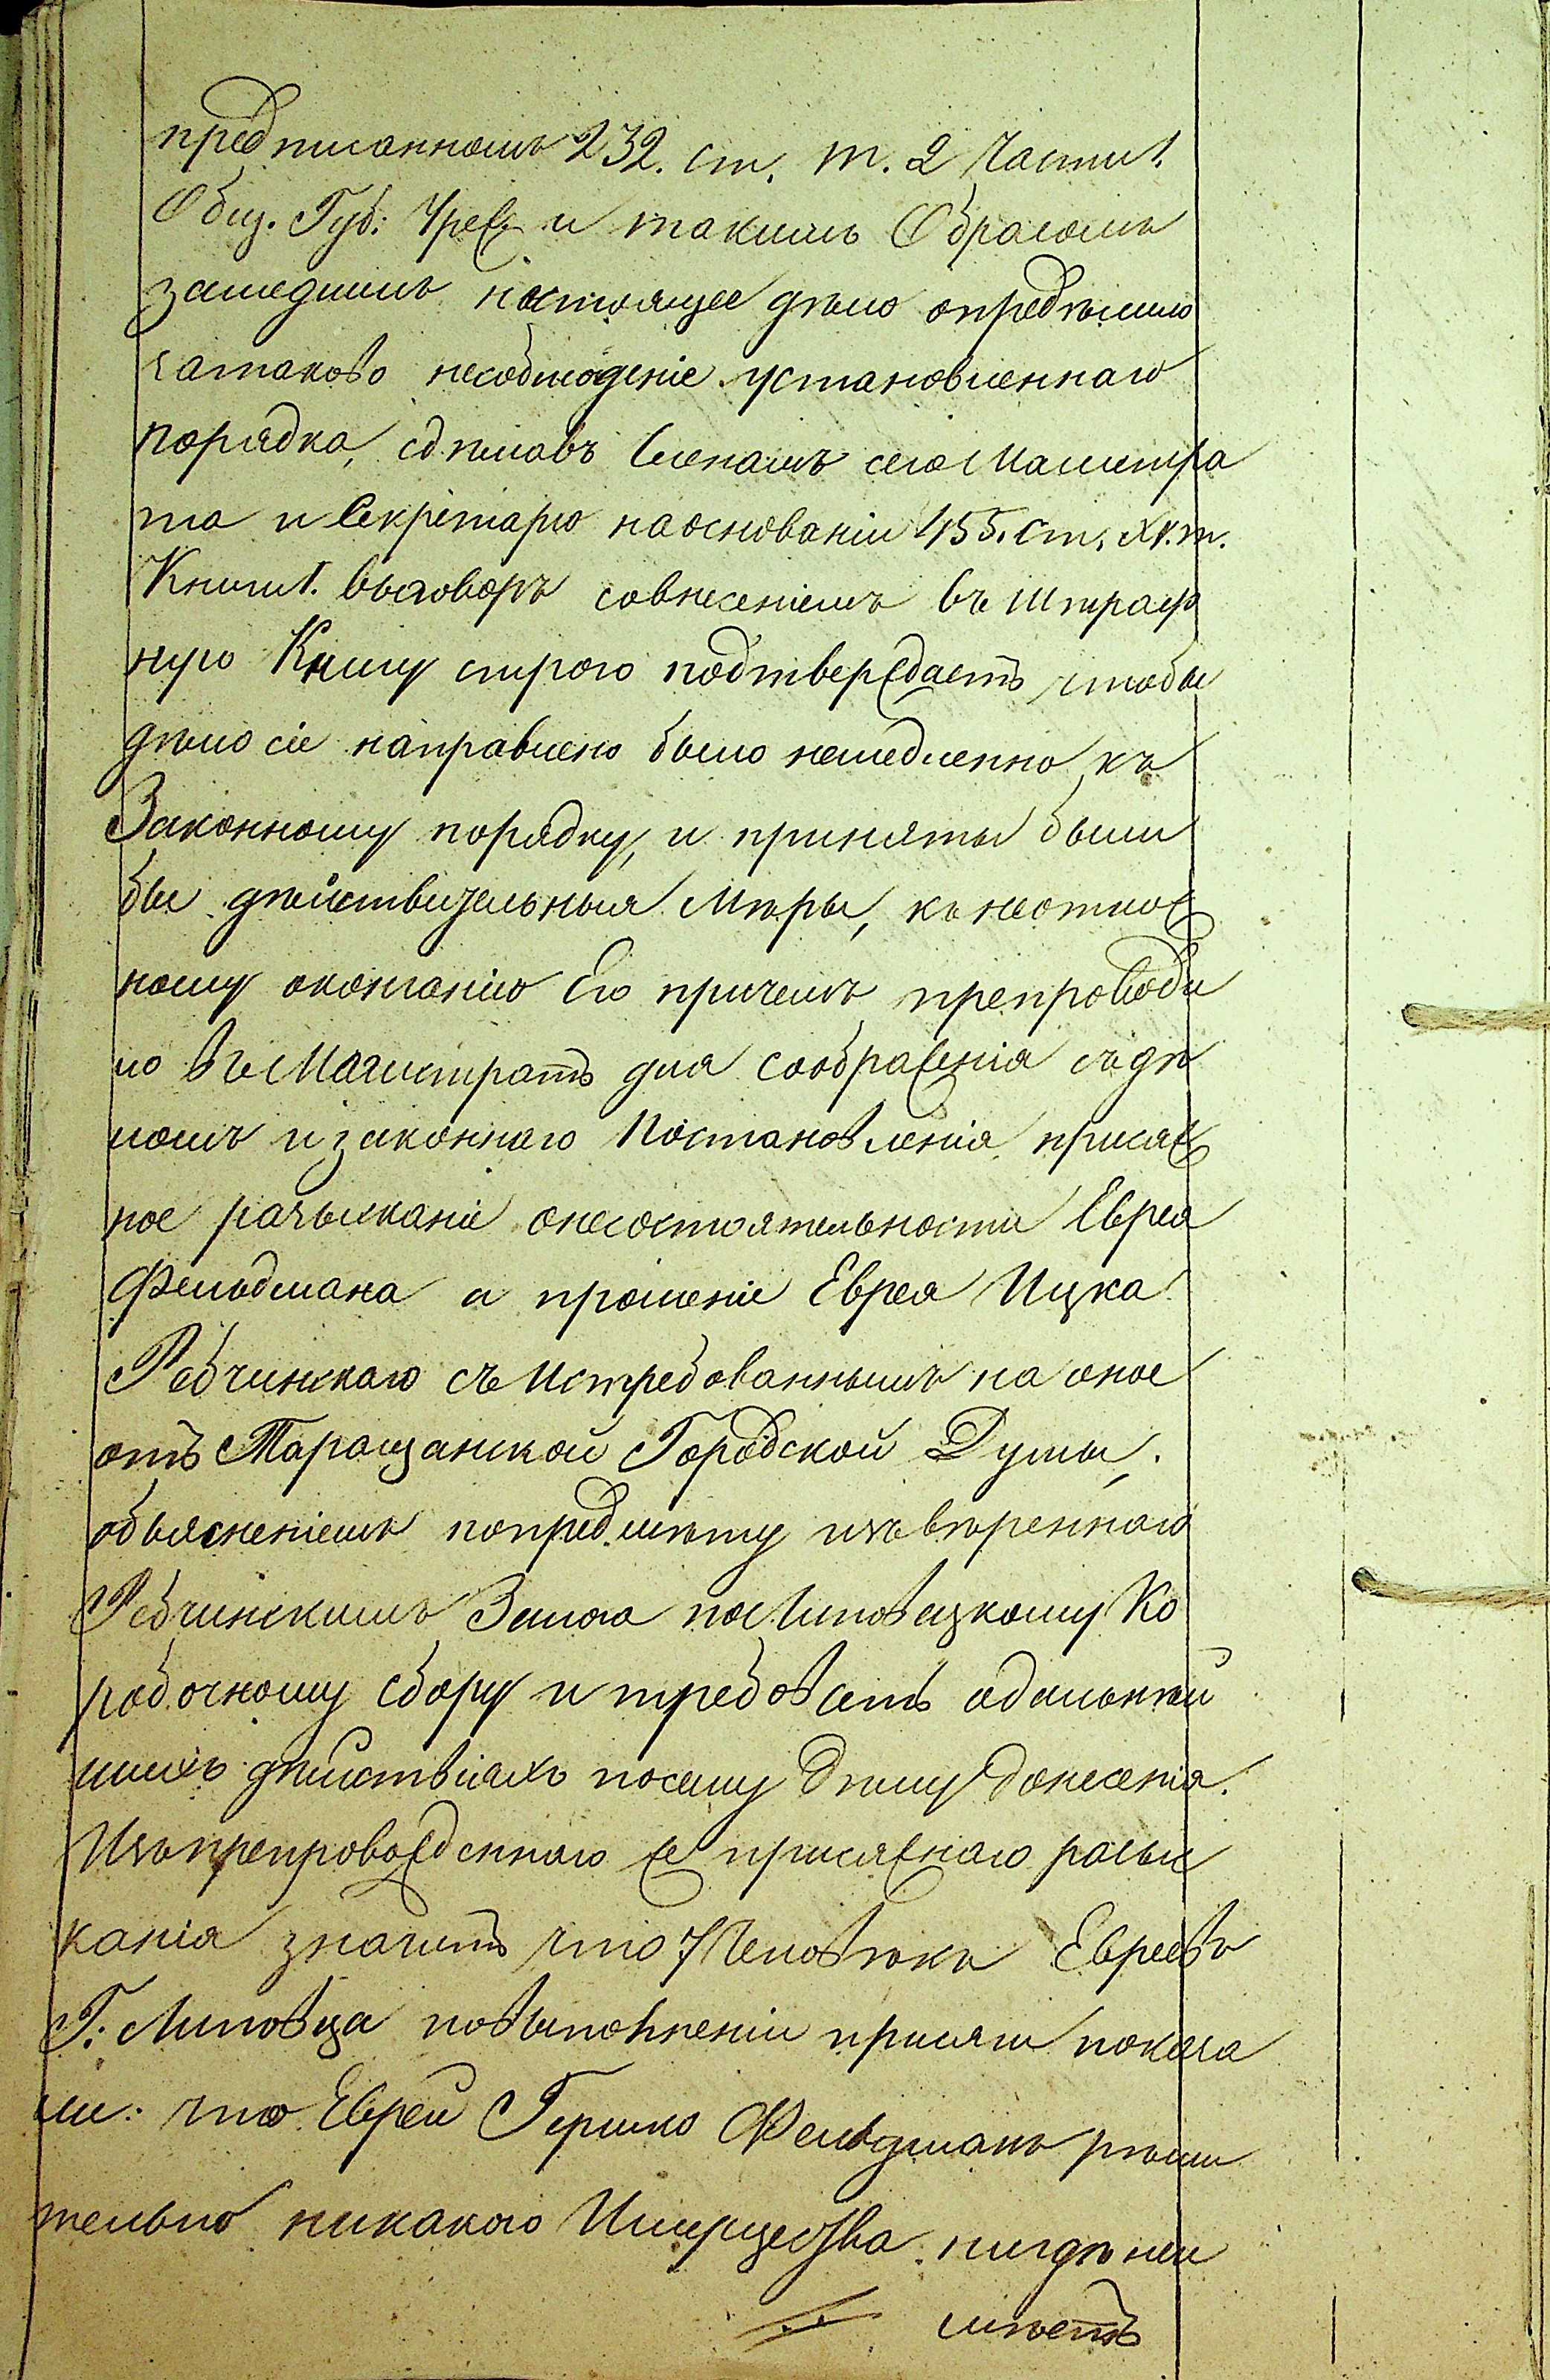 предписанномъ 232. ст. т. 2 Части 1.
Общ. Губ: Учреж и такимъ Образомъ
зашедшимъ настоящее дѣло опредѣлило
затаково несоблюденіе установленнаго
порядка, сдѣлавъ Членамъ сего Магистра
та и Секретарю наоснованіи 455. ст. XV. т.
Книги 1. выговоръ совнесеніемъ въ Штраф
ную Книгу строго подтверждаетъ чтобы
дѣло сіе направлено было немедленно къ
Законному порядку, и приняты были
бы дѣйствительныя Мѣры, къ неотлож
ному окончанію Его причемъ препроводи
ло въ Магистратъ для соображенія съ дѣ
ломъ и законнаго Постановленія присяж
ное разысканіе онесостоятельности Еврея
Фельдмана и прошеніе Еврея Ицка
Ребчинскаго съ Истребованнымъ на оное
отъ Таращанской Городской Думы,
объясненіемъ попредмѣту ихъ ввѣреннаго
Ребчинскимъ Залога по Липовецкому Ко
робочному сбору и требоветъ одальнѣй
шихъ дѣйствіяхъ посему дѣлу донесенія.
Изъ препровожденнаго же присяжнаго розыс
канія значитъ что 7 Человѣкъ Евреевъ
Г. Липовца повыполненіи присяги показа
ли: что Еврей Гершко Фельдманъ рѣши
тельно никакого Имущества нигдѣ неи
мѣетъ